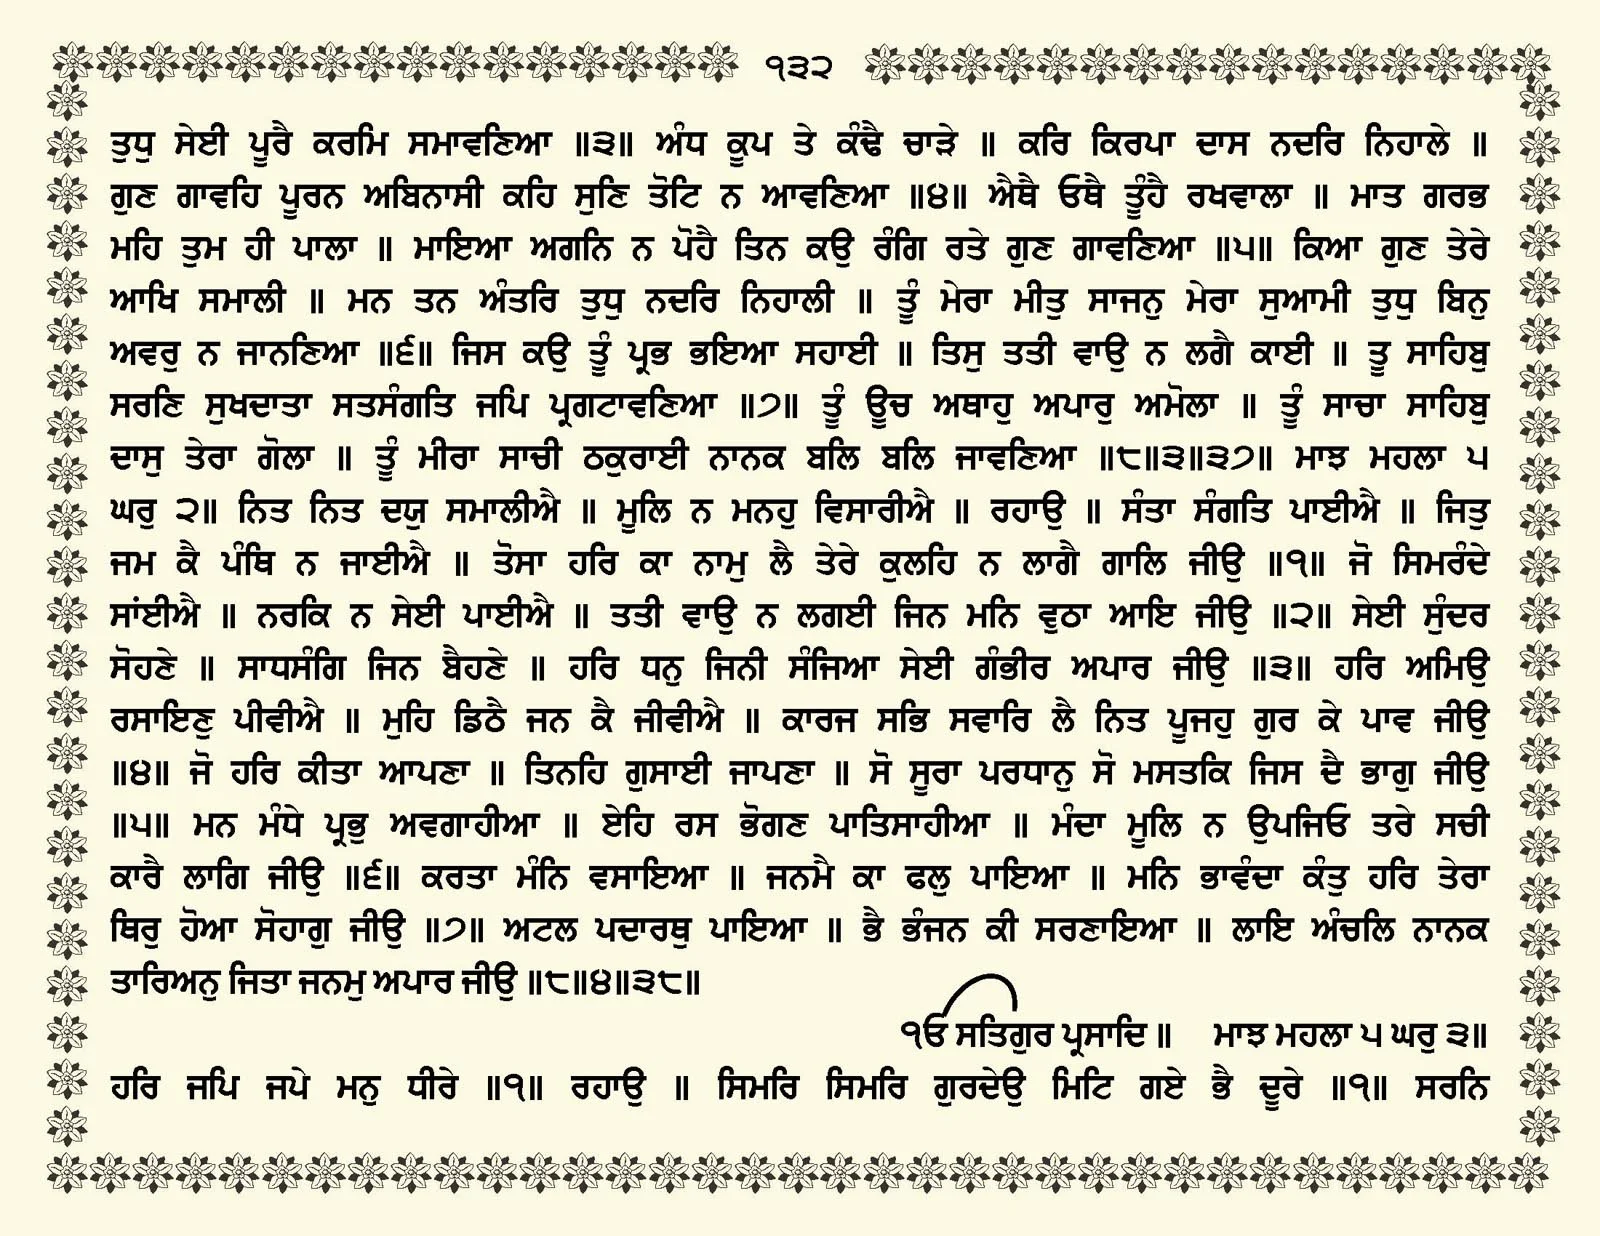 ੧੩੨
ਤੁਧੁ ਸੇਈ ਪੂਰੈ ਕਰਮਿ ਸਮਾਵਣਿਆ ॥੩॥ ਅੰਧ ਕੂਪ ਤੇ ਕੰਢੈ ਚਾੜੇ ॥ ਕਰਿ ਕਿਰਪਾ ਦਾਸ ਨਦਰਿ ਨਿਹਾਲੇ ॥
ਗੁਣ ਗਾਵਹਿ ਪੂਰਨ ਅਬਿਨਾਸੀ ਕਹਿ ਸੁਣਿ ਤੋਟਿ ਨ ਆਵਣਿਆ ॥੪॥ ਐਥੈ ਓਥੈ ਤੂੰਹੈ ਰਖਵਾਲਾ ॥ ਮਾਤ ਗਰਭ
ਮਹਿ ਤੁਮ ਹੀ ਪਾਲਾ ॥ ਮਾਇਆ ਅਗਨਿ ਨ ਪੋਹੈ ਤਿਨ ਕਉ ਰੰਗਿ ਰਤੇ ਗੁਣ ਗਾਵਣਿਆ ॥੫॥ ਕਿਆ ਗੁਣ ਤੇਰੇ
ਆਖਿ ਸਮਾਲੀ ॥ ਮਨ ਤਨ ਅੰਤਰਿ ਤੁਧੁ ਨਦਰਿ ਨਿਹਾਲੀ ॥ ਤੂੰ ਮੇਰਾ ਮੀਤੁ ਸਾਜਨੁ ਮੇਰਾ ਸੁਆਮੀ ਤੁਧੁ ਬਿਨੁ
ਅਵਰੁ ਨ ਜਾਨਣਿਆ ॥੬॥ ਜਿਸ ਕਉ ਤੂੰ ਪ੍ਰਭ ਭਇਆ ਸਹਾਈ ॥ ਤਿਸੁ ਤਤੀ ਵਾਉ ਨ ਲਗੈ ਕਾਈ ॥ ਤੂ ਸਾਹਿਬੁ
ਸਰਣਿ ਸੁਖਦਾਤਾ ਸਤਸੰਗਤਿ ਜਪਿ ਪ੍ਰਗਟਾਵਣਿਆ ॥੭॥ ਤੂੰ ਊਚ ਅਥਾਹੁ ਅਪਾਰੁ ਅਮੋਲਾ ॥ ਤੂੰ ਸਾਚਾ ਸਾਹਿਬੁ
ਦਾਸੁ ਤੇਰਾ ਗੋਲਾ ॥ ਤੂੰ ਮੀਰਾ ਸਾਚੀ ਠਕੁਰਾਈ ਨਾਨਕ ਬਲਿ ਬਲਿ ਜਾਵਣਿਆ ॥੮॥੩॥੩੭॥ ਮਾਝ ਮਹਲਾ ੫
ਘਰੁ ੨॥ ਨਿਤ ਨਿਤ ਦਯੁ ਸਮਾਲੀਐ ॥ ਮੂਲਿ ਨ ਮਨਹੁ ਵਿਸਾਰੀਐ ॥ ਰਹਾਉ ॥ ਸੰਤਾ ਸੰਗਤਿ ਪਾਈਐ ॥ ਜਿਤੁ
ਜਮ ਕੈ ਪੰਥਿ ਨ ਜਾਈਐ ॥ ਤੋਸਾ ਹਰਿ ਕਾ ਨਾਮੁ ਲੈ ਤੇਰੇ ਕੁਲਹਿ ਨ ਲਾਗੈ ਗਾਲਿ ਜੀਉ ॥੧॥ ਜੋ ਸਿਮਰੰਦੇ
ਸਾਂਈਐ ॥ ਨਰਕਿ ਨ ਸੇਈ ਪਾਈਐ ॥ ਤਤੀ ਵਾਉ ਨ ਲਗਈ ਜਿਨ ਮਨਿ ਵੁਠਾ ਆਇ ਜੀਉ ॥੨॥ ਸੇਈ ਸੁੰਦਰ
ਸੋਹਣੇ ॥ ਸਾਧਸੰਗਿ ਜਿਨ ਬੈਹਣੇ ॥ ਹਰਿ ਧਨੁ ਜਿਨੀ ਸੰਜਿਆ ਸੇਈ ਗੰਭੀਰ ਅਪਾਰ ਜੀਉ ॥੩॥ ਹਰਿ ਅਮਿਉ
ਰਸਾਇਣੁ ਪੀਵੀਐ ॥ ਮੁਹਿ ਡਿਠੈ ਜਨ ਕੈ ਜੀਵੀਐ ॥ ਕਾਰਜ ਸਭਿ ਸਵਾਰਿ ਲੈ ਨਿਤ ਪੂਜਹੁ ਗੁਰ ਕੇ ਪਾਵ ਜੀਉ
॥੪॥ ਜੋ ਹਰਿ ਕੀਤਾ ਆਪਣਾ ॥ ਤਿਨਹਿ ਗੁਸਾਈ ਜਾਪਣਾ ॥ ਸੋ ਸੂਰਾ ਪਰਧਾਨੁ ਸੋ ਮਸਤਕਿ ਜਿਸ ਦੈ ਭਾਗੁ ਜੀਉ
॥੫॥ ਮਨ ਮੰਧੇ ਪ੍ਰਭੁ ਅਵਗਾਹੀਆ ॥ ਏਹਿ ਰਸ ਭੋਗਣ ਪਾਤਿਸਾਹੀਆ ॥ ਮੰਦਾ ਮੂਲਿ ਨ ਉਪਜਿਓ ਤਰੇ ਸਚੀ
ਕਾਰੈ ਲਾਗਿ ਜੀਉ ॥੬॥ ਕਰਤਾ ਮੰਨਿ ਵਸਾਇਆ ॥ ਜਨਮੈ ਕਾ ਫਲੁ ਪਾਇਆ ॥ ਮਨਿ ਭਾਵੰਦਾ ਕੰਤੁ ਹਰਿ ਤੇਰਾ
ਥਿਰੁ ਹੋਆ ਸੋਹਾਗੁ ਜੀਉ ॥੭॥ ਅਟਲ ਪਦਾਰਥੁ ਪਾਇਆ ॥ ਭੈ ਭੰਜਨ ਕੀ ਸਰਣਾਇਆ ॥ ਲਾਇ ਅੰਚਲਿ ਨਾਨਕ
ਤਾਰਿਅਨੁ ਜਿਤਾ ਜਨਮੁ ਅਪਾਰ ਜੀਉ ॥੮॥੪॥੩੮॥
ੴ ਸਤਿਗੁਰ ਪ੍ਰਸਾਦਿ ॥ ਮਾਝ ਮਹਲਾ ੫ ਘਰੁ ੩॥
ਹਰਿ ਜਪਿ ਜਪੇ ਮਨੁ ਧੀਰੇ ॥੧॥ ਰਹਾਉ ॥ ਸਿਮਰਿ ਸਿਮਰਿ ਗੁਰਦੇਉ ਮਿਟਿ ਗਏ ਭੈ ਦੂਰੇ ॥੧॥ ਸਰਨਿ